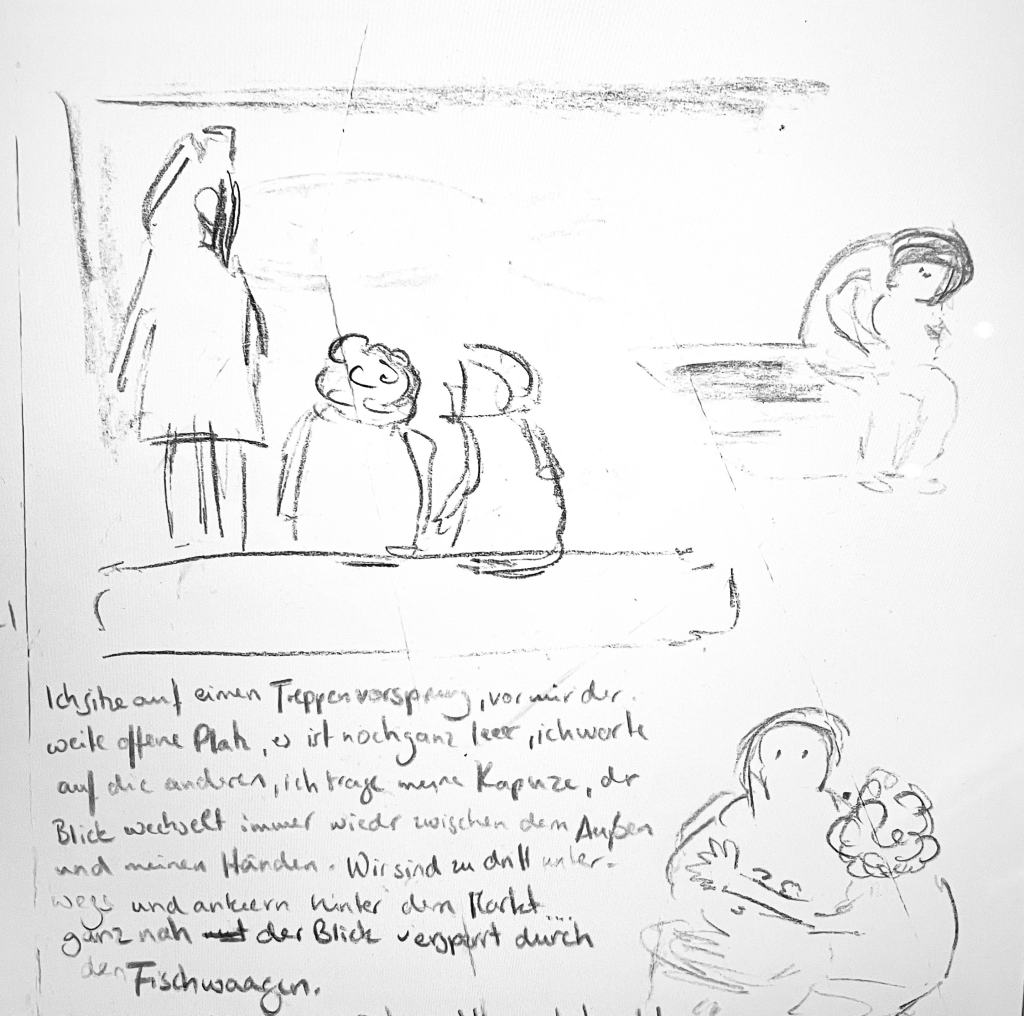 Ich sitze auf einen Treppenvorsprung, vor mir der
weite offene Platz, es ist noch ganz leer, ich warte
auf die anderen, ich trage meine Kapuze, der
Blick wechselt immer wieder zwischen dem Außen
und meinen Händen. Wir sind zu dritt unter-
wegs und ankern hinter dem Markt...
ganz nah der Blick versperrt durch
den Fischwaagen.